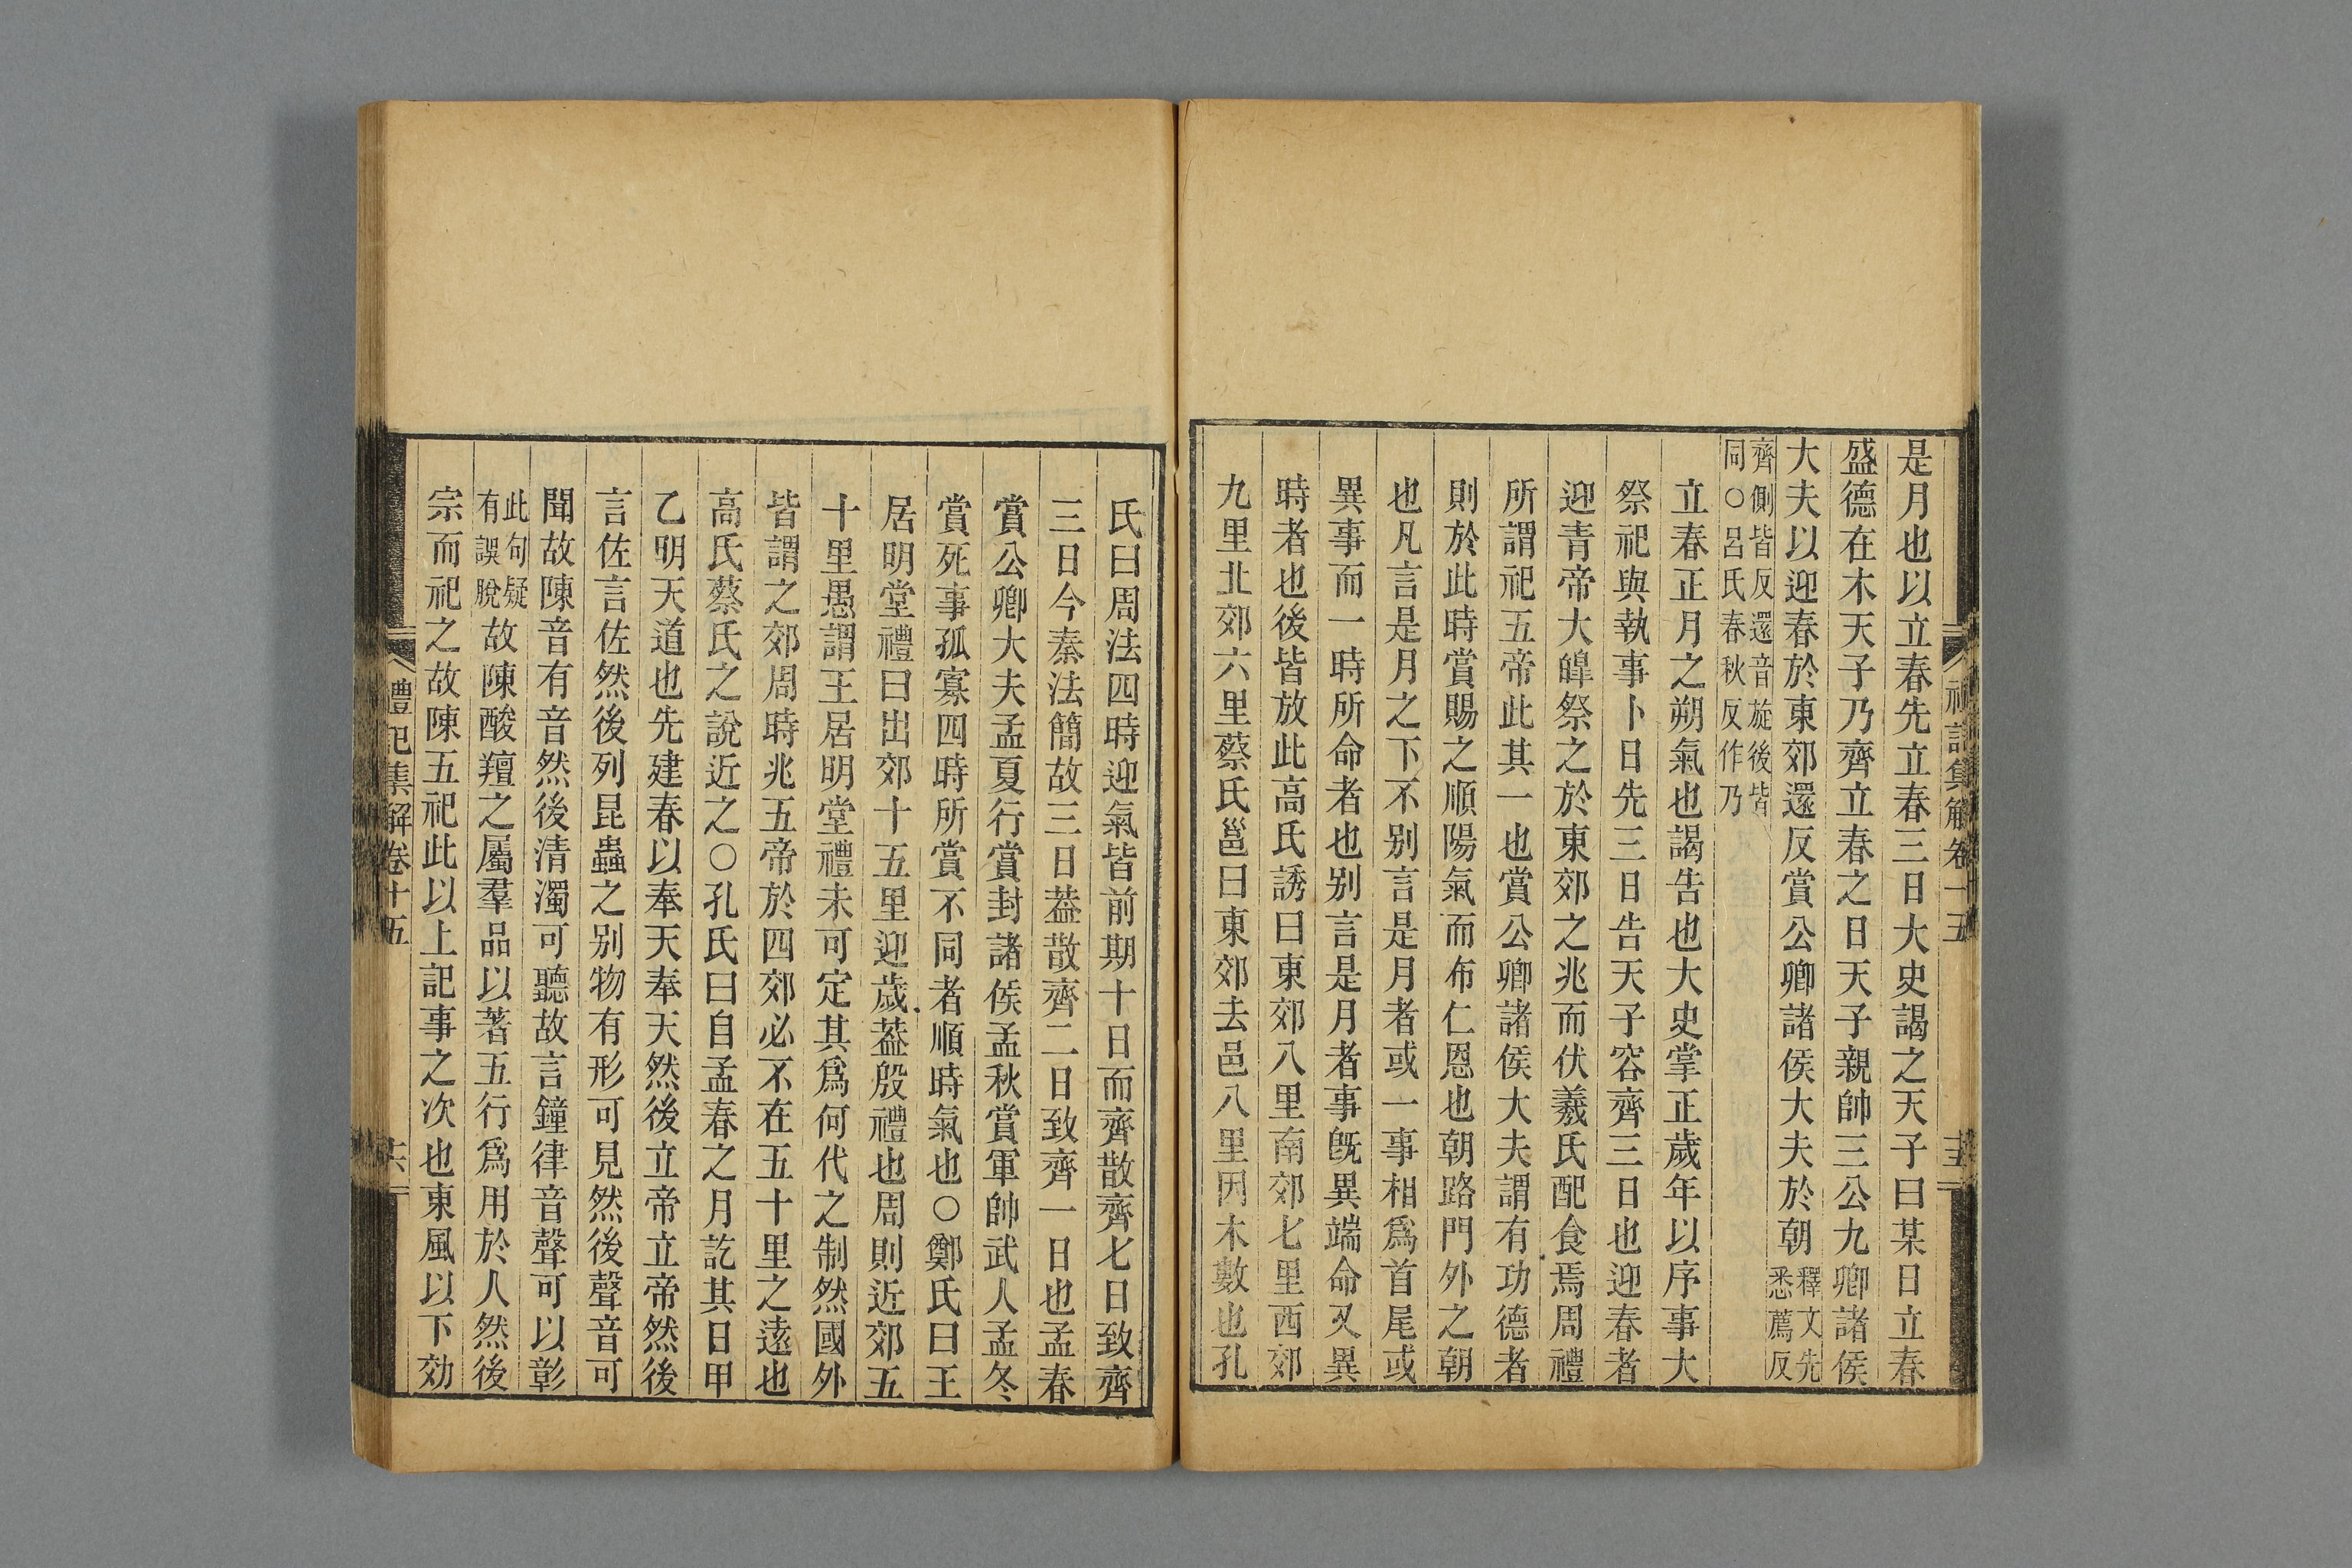 禮記集解卷十五
是月也以立春先立春三日大史謁之天子曰某日立春
盛德在木天子乃齊立春之日天子親帥三公九卿諸侯
大夫以迎春於東郊還反賞公卿諸侯大夫於朝釋文先悉薦反
齊側皆反還音旋後皆同○呂氏春秋反作乃
立春正月之朔氣也謁告也大史掌正歲年以序事大
祭祀與執事卜日先三日告天子容齊三日也迎春者
迎青帝大皥祭之於東郊之兆而伏羲氏配食焉周禮
所謂祀五帝此其一也賞公卿諸侯大夫謂有功德者
則於此時賞賜之順陽氣而布仁恩也朝路門外之朝
也凡言是月之下不別言是月者或一事相爲首尾或
異事而一時所命者也別言是月者事旣異端命又異
時者也後皆放此高氏誘曰東郊八里南郊七里西郊
九里北郊六里蔡氏邕曰東郊去邑八里因木數也孔
氏曰周法四時迎氣皆前期十日而齊散齊七日致齊
三日今秦法簡故三日葢散齊二日致齊一日也孟春
賞公卿大夫孟夏行賞封諸侯孟秋賞軍帥武人孟冬
賞死事孤寡四時所賞不同者順時氣也○鄭氏曰王
居明堂禮曰出郊十五里迎歲葢殷禮也周則近郊五
十里愚謂王居明堂禮未可定其爲何代之制然國外
皆謂之郊周時兆五帝於四郊必不在五十里之遠也
高氏蔡氏之說近之○孔氏曰自孟春之月訖其日甲
乙明天道也先建春以奉天奉天然後立帝立帝然後
言佐言佐然後列昆蟲之別物有形可見然後聲音可
聞故陳音有音然後清濁可聽故言鐘律音聲可以彰
此句疑有誤脫故陳酸羶之屬羣品以著五行爲用於人然後
宗而祀之故陳五祀此以上記事之次也東風以下効
禮記集解卷十五